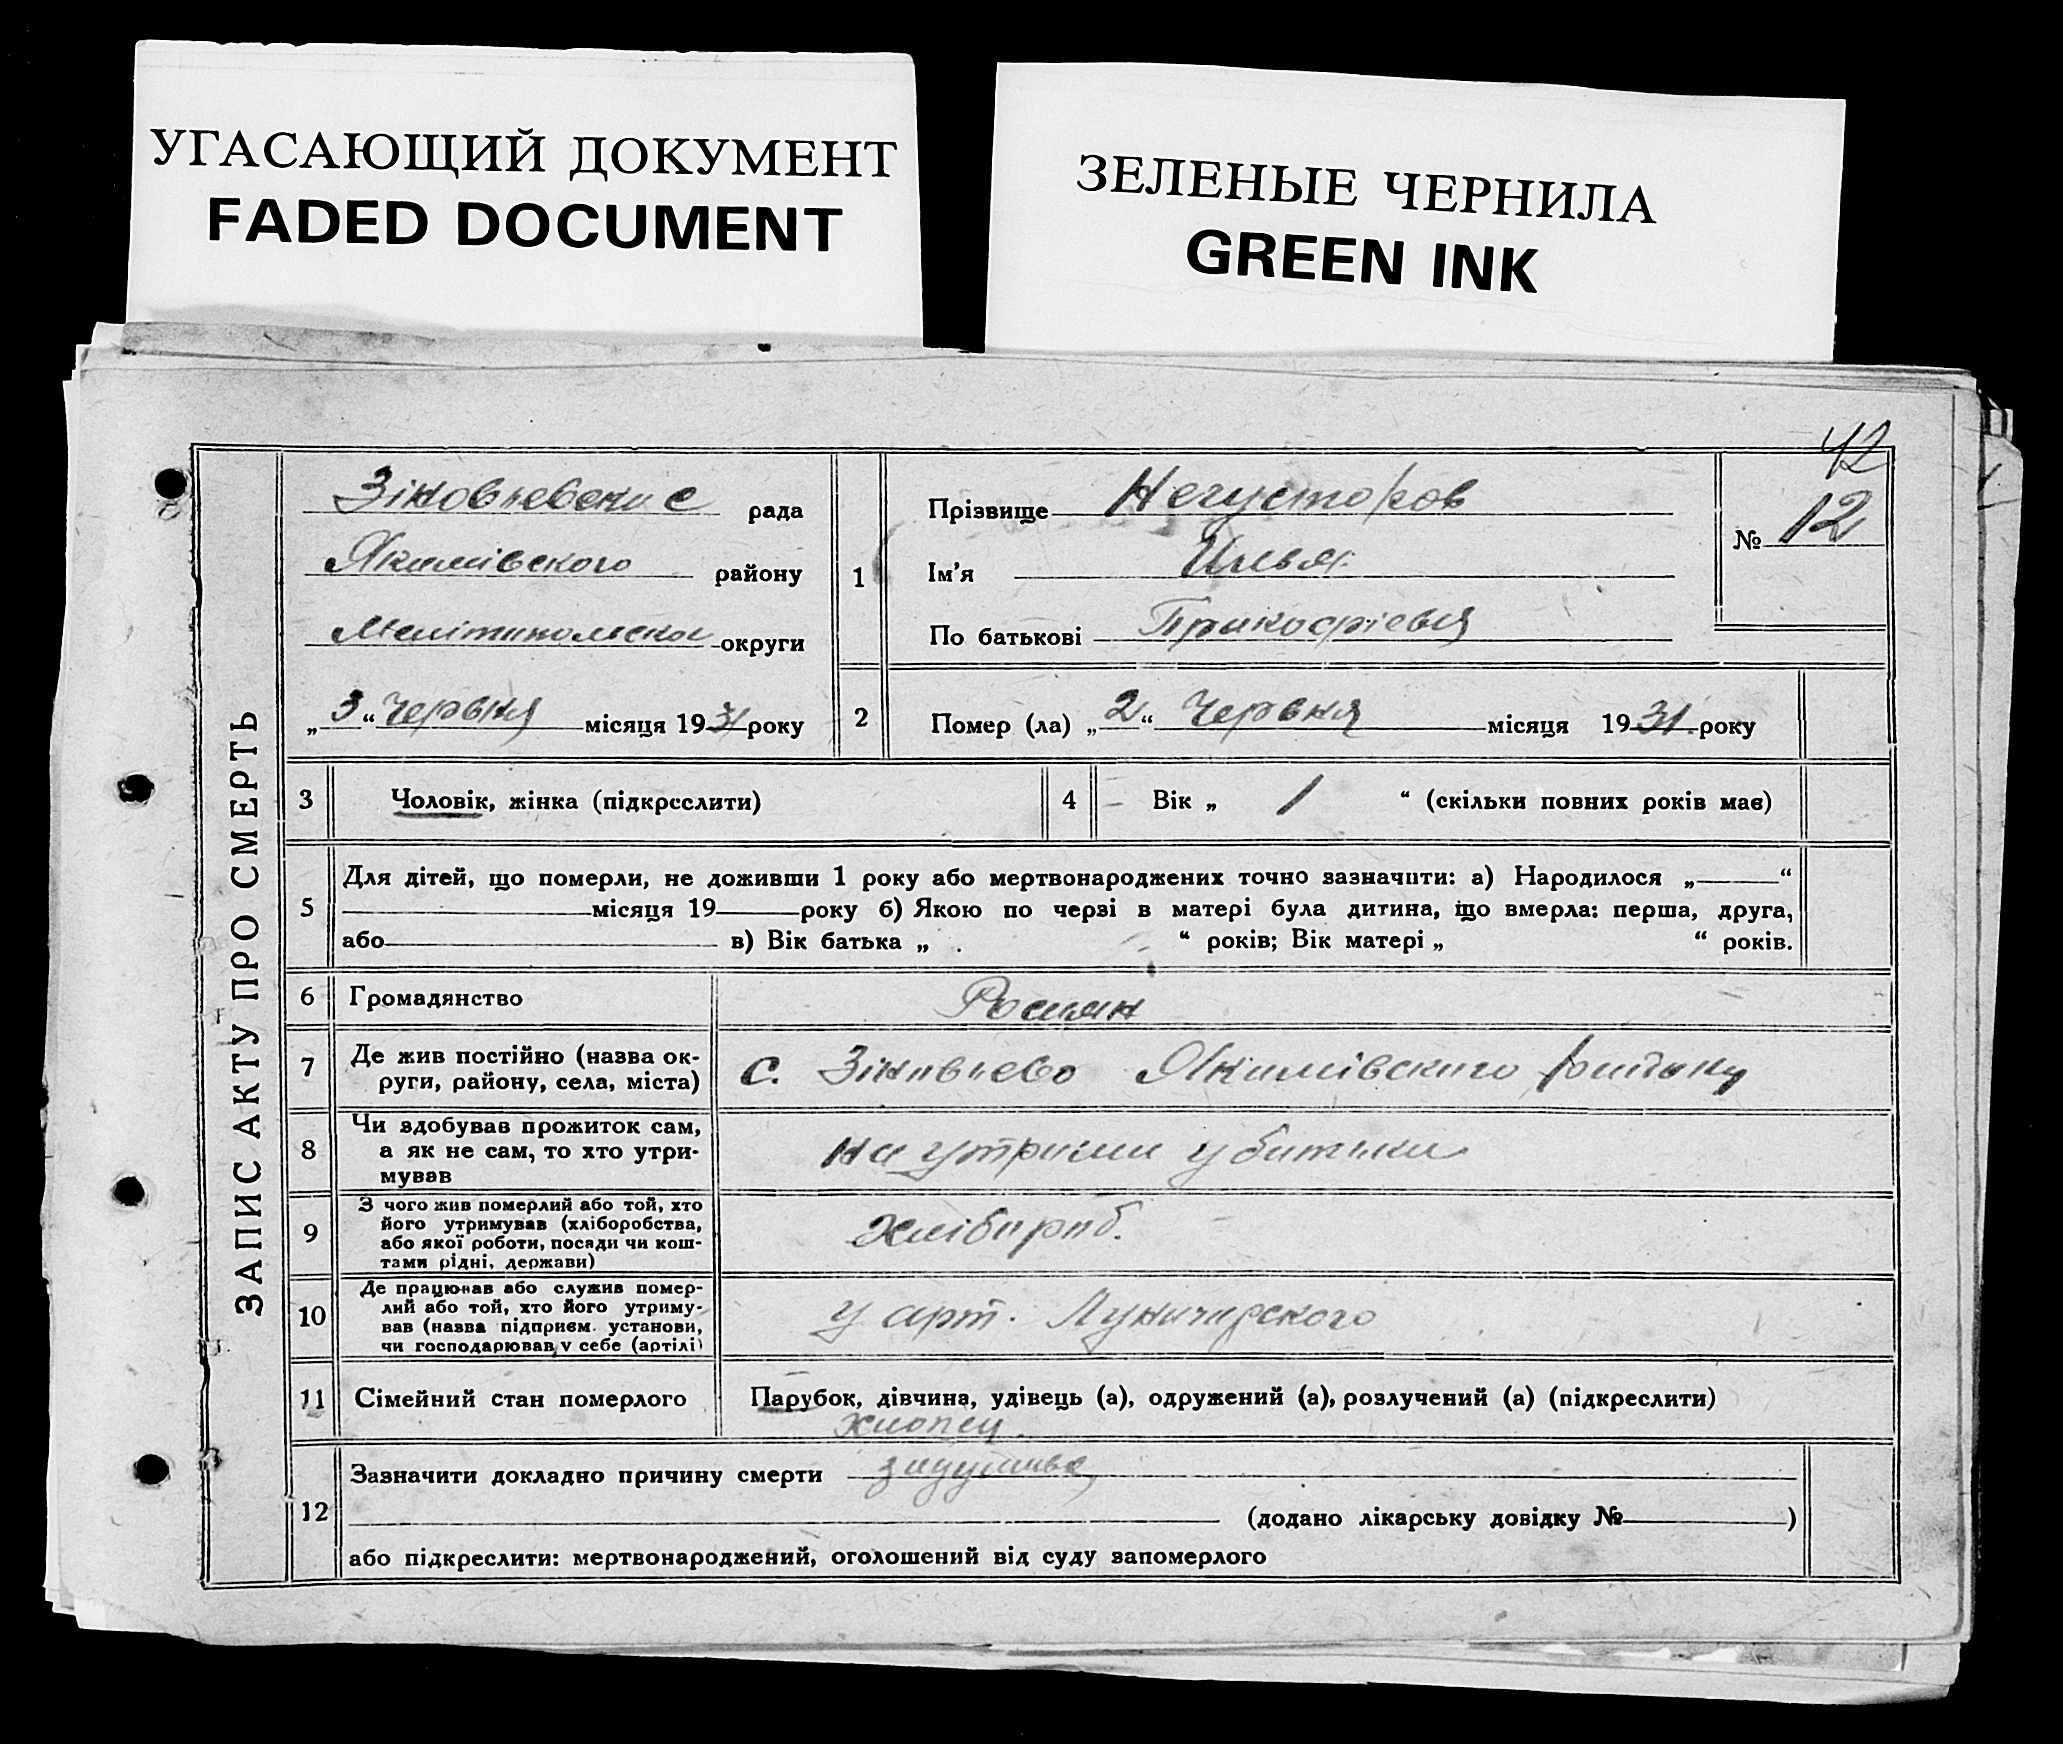 УГАСАЮЩИЙ ДОКУМЕНТ
FADED DOCUMENT
ЗЕЛЕНЫЕ ЧЕРНИЛА
GREEN INK
42
ЗАПИС АКТУ ПРО СМЕРТЬ
рада
Якимівского району
округи
„3“ Червня місяця 1931 року
1
Прізвище Негусторов
Ім'я Илья
По батькові
№ 12
2
Помер (ла) „2“ Червня місяця 1931 року
3
Чоловік, жінка (підкреслити)
4
Вік „ 1 “ (скільки повних років має)
5
Для дітей, що померли, не доживши 1 року або мертвонароджених точно зазначити: а) Народилося „ “
місяця 19 року б) Якою по черзі в матері була дитина, що вмерла: перша, друга,
або в) Вік батька „ “ років; Вік матері „ “ років.
6
Громадянство
Росиян
7
Де жив постійно (назва ок-
руги, району, села, міста)
с. Зіновʼево Якимівского району
8
Чи здобував прожиток сам,
а як не сам, то хто утри-
мував
на утрим у батька
9
З чого жив померлий або той, хто
його утримував (хліборобства,
або якої роботи, посади чи кош-
тами рідні, держави)
хлібороб.
10
Де працював або служив помер-
лий або той, хто його утриму-
вав (назва підприєм. установи,
чи господарював у себе (артілі)
у арт. Луначарского
11
Сімейний стан померлого
Парубок, дівчина, удівець (а), одружений (а), розлучений (а) (підкреслити)
хлопец.
12
Зазначити докладно причину смерти
(додано лікарську довідку № )
або підкреслити: мертвонароджений, оголошений від суду запомерлого